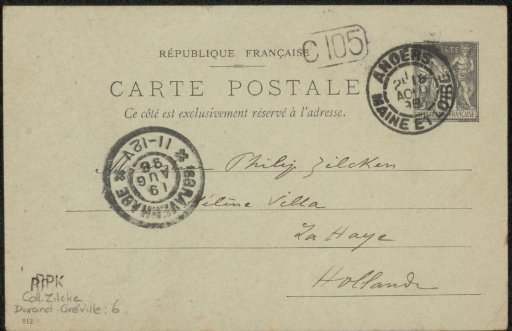 C 105
RÉPUBLIQUE FRANÇAISE
CARTE POSTALE
Ce côté est exclusivement réservé à l'adresse.
ANGERS
18
AOUT
98
MAINE ET LOIRE
POSTE
FRANÇAISE
11-12V
98
AUG
19
'SGRAVENHAGE
Philip Zilcken
Hélène Villa
La Haye
Hollande
RPK
Coll. Zilcke
Durand-Gréville: 6.
812